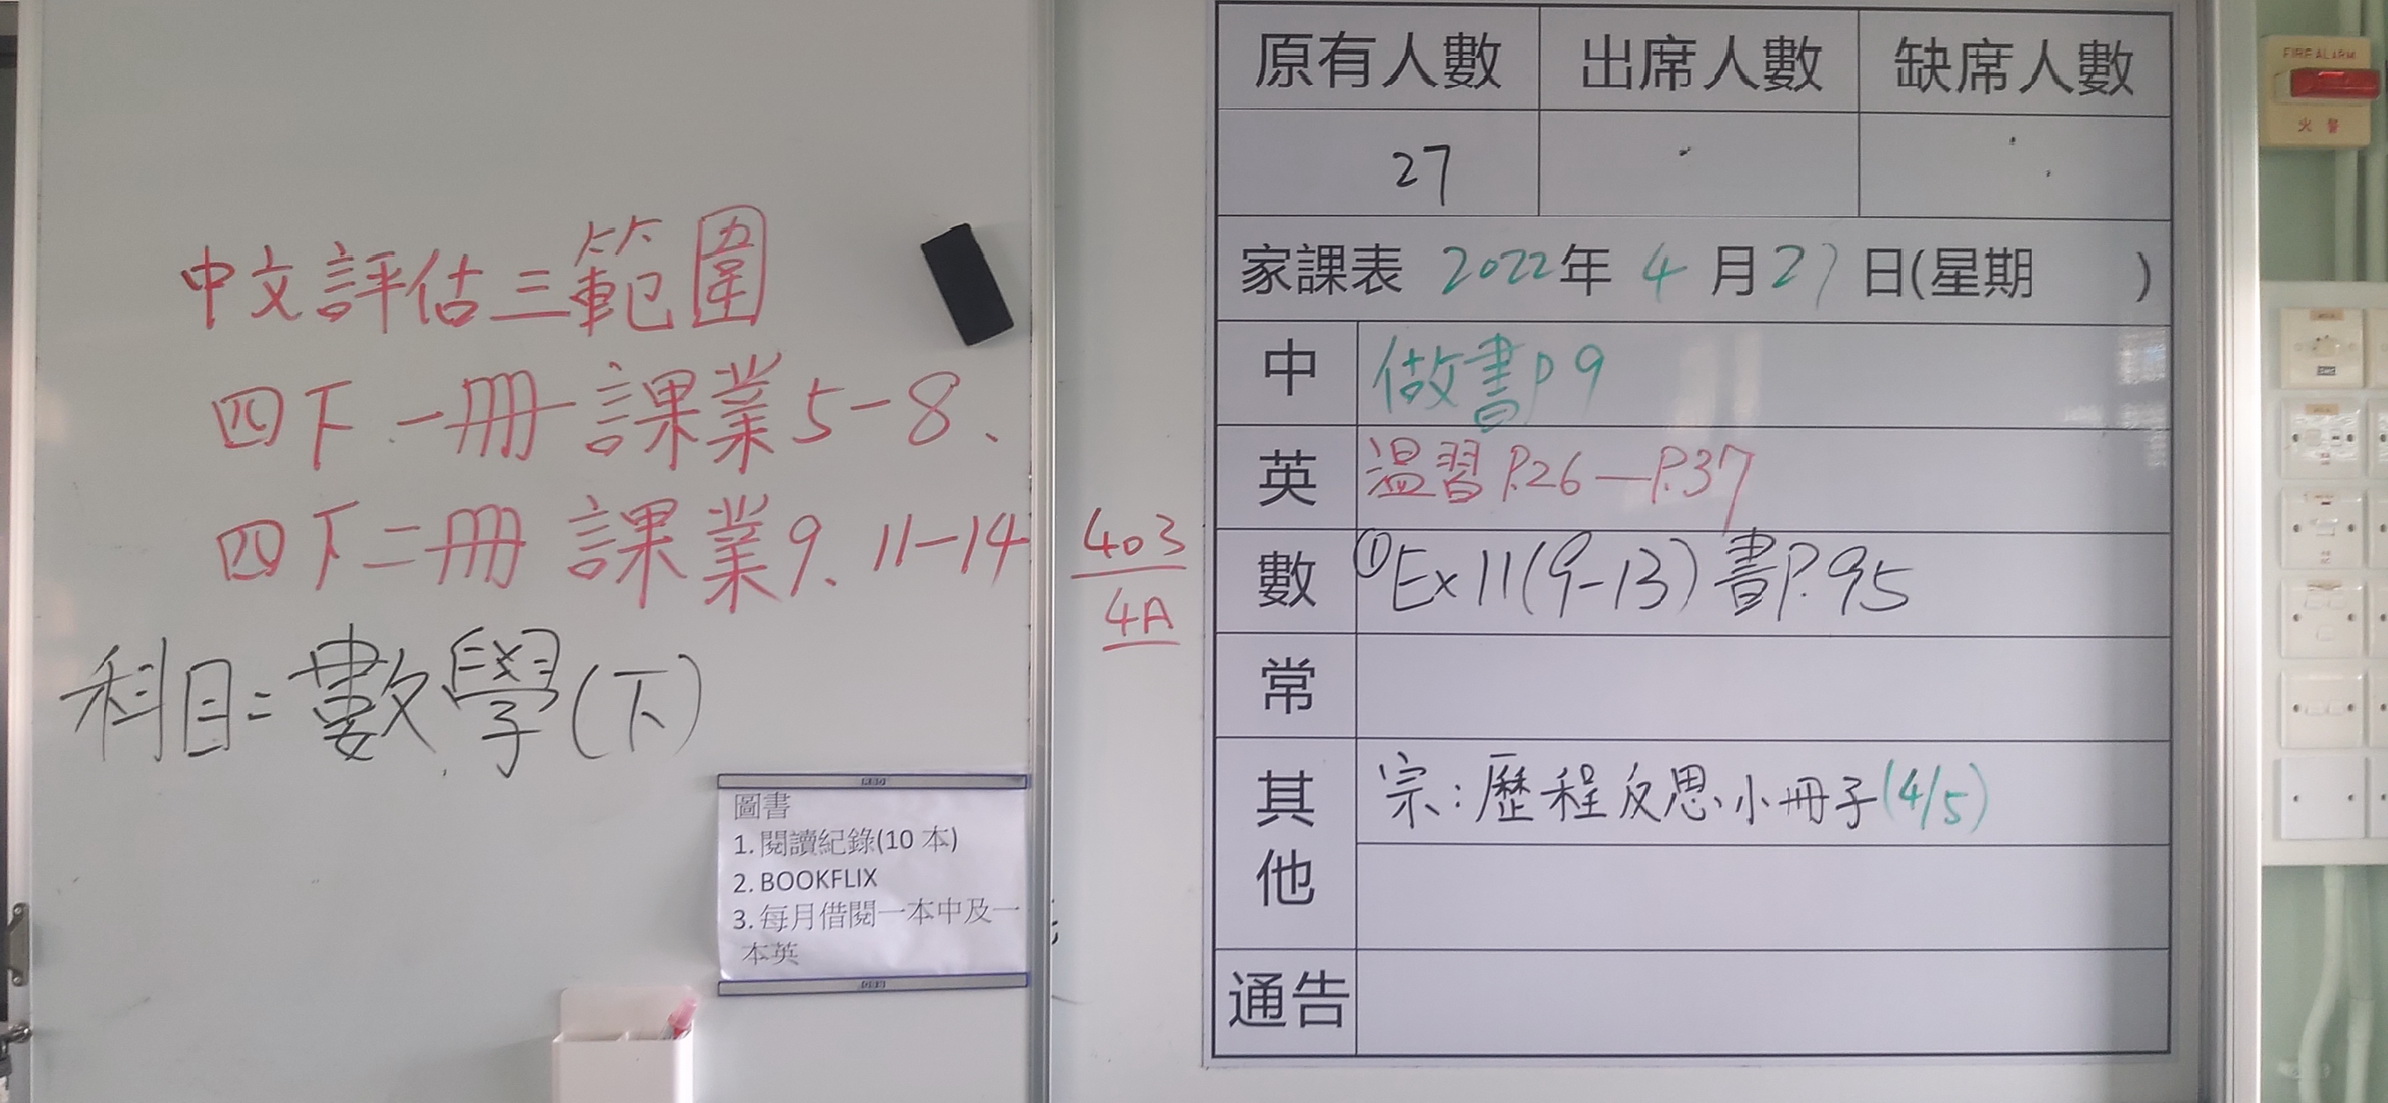 中文評估三範圍
四下一冊 課業5-8、
四下二冊 課業9、11-14
科目:數學(下)
圖書
1. 閱讀紀錄(10 本)
2. BOOKFLIX
3. 每月借閱一本中及一
本英
403
4A
原有人數 出席人數 缺席人數
27
家課表 2022年 4 月 27 日(星期 )
中 做書P9
英 溫習P.26—P.37
數 ①Ex 11(9-13)書P.95
常
其他 宗:歷程反思小冊子(4/5)
通告
FIRE ALARM
火警